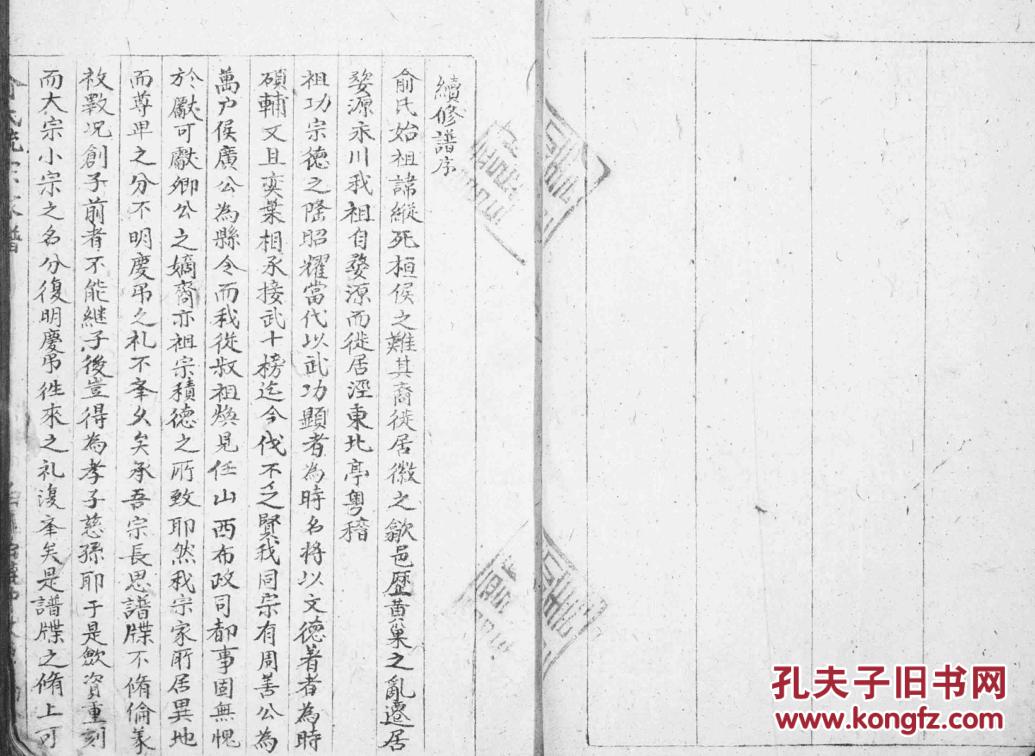 續修譜序
俞氏始祖諱縱死桓侯之難其裔徙居徽之歙邑歷黃巢之亂遷居
婺源永川我祖自婺源而徙居涇東北亭粵稽
祖功宗德之隆昭耀當代以武功顯者為時名將以文德著者為時
碩輔又且奕葉相承接武十榜迄今伐不乏賢我同宗有周善公為
萬户侯廣公為縣令而我從叔祖煥見任山西布政司都事固無愧
於獻可獻卿公之嫡裔亦祖宗積德之所致耶然我宗家所居異地
而尊卑之分不明慶弔之礼不峯久矣承吾宗長思譜牒不脩倫
被斁况創子前者不能継子後豈得為孝子慈孫耶于是歛資重刻
而大宗小宗之名分復明慶弔徃來之礼復峯矣是譜牒之脩上可
孔夫子旧书网
www.kongfz.com